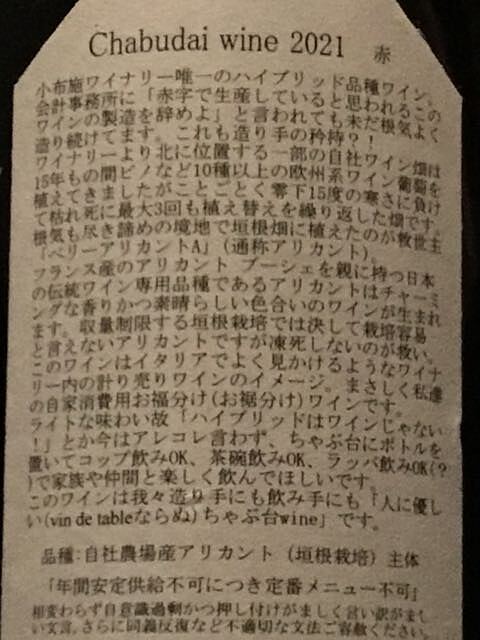 Chabudai wine 2021 赤
小布施ワイナリー唯一のハイブリッド品種ワイン。
会計事務所に「赤字で生産していると思われるこの
ワインの製造を辞めよ」と言われても未だ根気よく
造り続けてます。これも造り手の矜持？！
ワイナリーより北に位置する一部の自社ワイン畑は
15年もの間ピノなど10種以上の欧州系ワイン葡萄を
植えてきましたがことごとく零下15度の寒さに負け
て枯れ死に最大3回も植え替えを繰り返した畑です。
根気も尽き諦めの境地で垣根畑に植えたのが救世主
「ベリーアリカントA」（通称アリカント）。
フランス産のアリカント ブーシェを親に持つ日本
の伝統ワイン専用品種であるアリカントはチャーミ
ングな香りかつ素晴らしい色合いのワインが生まれ
ます。収量制限する垣根栽培では決して栽培容易
と言えないアリカントですが凍死しないのが救い。
このワインはイタリアでよく見かけるようなワイナ
リー内の計り売りワインのイメージ。まさしく私達
の自家消費用お福分け(お裾分け)ワインです。
ライトな味わい故「ハイブリッドはワインじゃない
！」とか今はアレコレ言わず、ちゃぶ台にボトルを
置いてコップ飲みOK、茶碗飲みOK、ラッパ飲みOK(？
)で家族や仲間と楽しく飲んでほしいです。
このワインは我々造り手にも飲み手にも「人に優し
い(vin de tableならぬ)ちゃぶ台wine」です。
品種：自社農場産アリカント（垣根栽培）主体
「年間安定供給不可につき定番メニュー不可」
相変わらず自意識過剰かつ押し付けがましく言い訳がまし
い文言、さらに同義反復など不適切な文法ご容赦ください